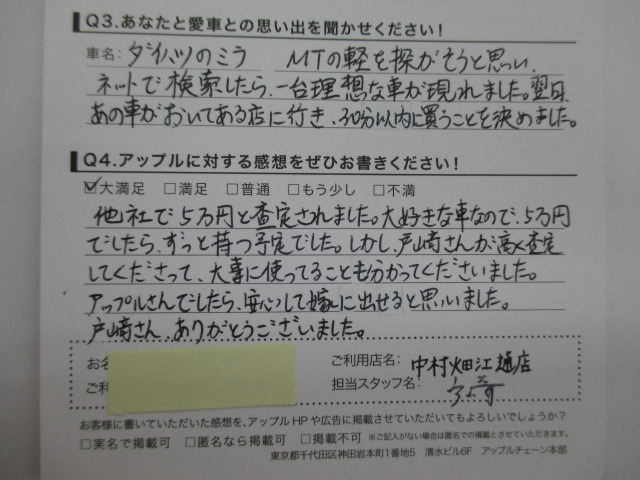 Q3.あなたと愛車との思い出を聞かせください!
車名: ダイハツのミラ MTの軽を探がそうと思い、
ネットで検索したら、一台理想な車が現れました。翌日、
あの車がおいてある店に行き、30分以内に買うことを決めました。
Q4.アップルに対する感想をぜひお書きください!
☑大満足 □満足 □普通 □もう少し □不満
他社で5万円と査定されました。大好きな車なので、5万円
でしたら、ずっと持つ予定でした。しかし、戸崎さんが高く査定
してくださって、大事に使ってることも分かってくださいました。
アップルさんでしたら、安心して嫁に出せると思いました。
戸崎さん、ありがとうございました。
お名
ご利用店名: 中村畑江通店
ご利
担当スタッフ名:
お客様に書いていただいた感想を、アップルHPや広告に掲載させていただいてもよろしいでしょうか?
□実名で掲載可 □匿名なら掲載可 □掲載不可 ※ご記入がない場合は匿名での掲載とさせていただきます。
東京都千代田区神田岩本町1番地5 清水ビル6F アップルチェーン本部